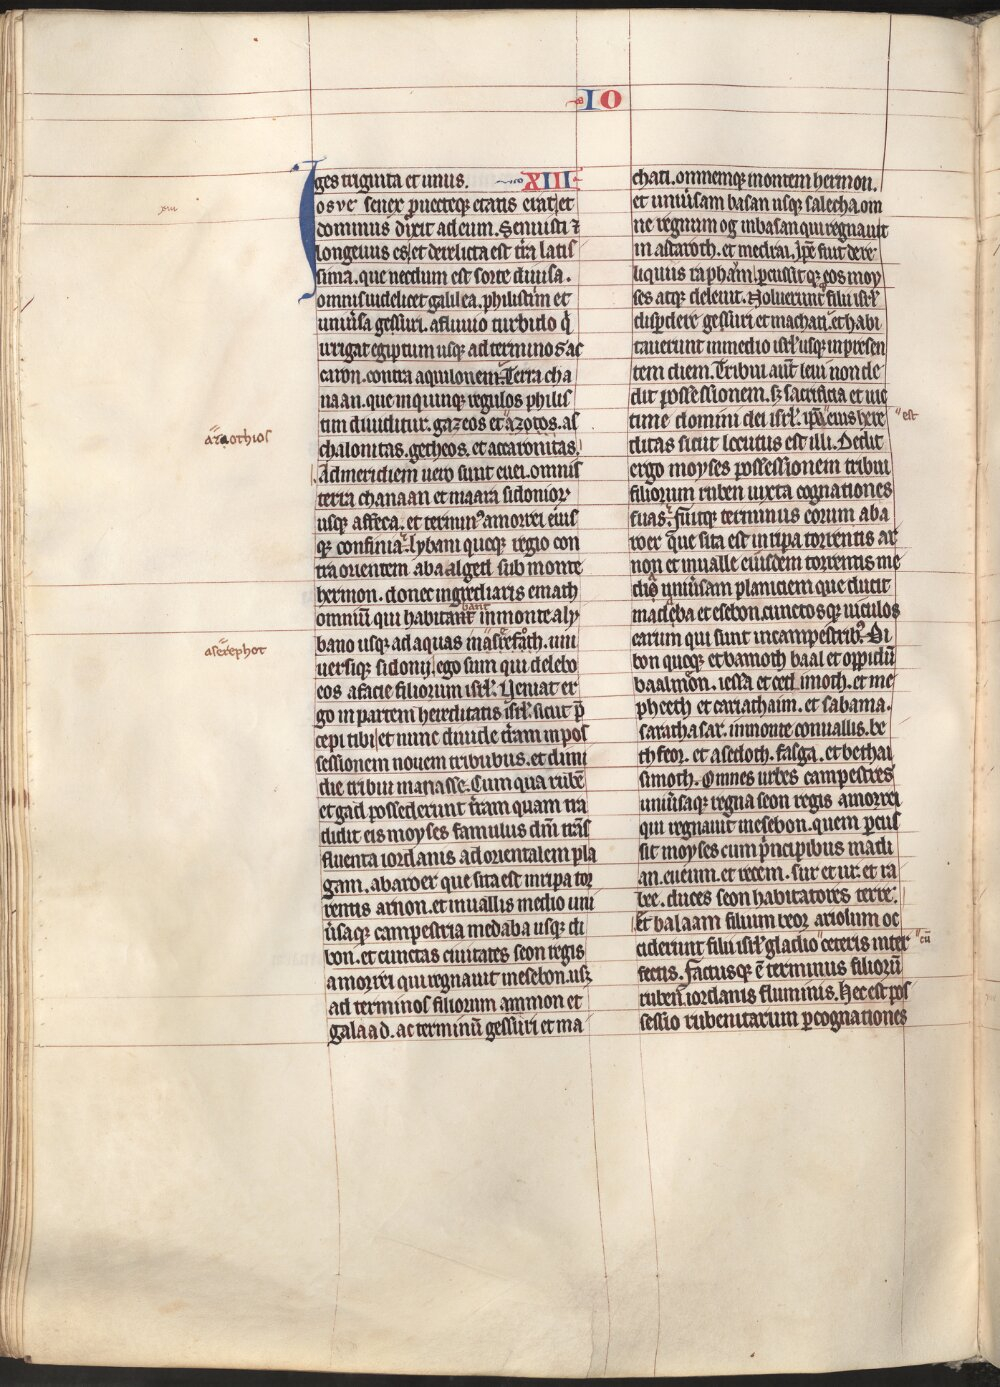 IO
ges triginta et unius. XIII
Iosue senex ꝓuecteqꝫ etatis erat et
dominus dixit ad eum. Senuisti ⁊
longeuus es, et derelicta est tr̄a latis
sima. que necdum est sorte diuisa.
omnis uidelicet galilea. philistim et
uniu̾sa gessuri. a fluuio turbido q̇
irrigat egiptum usqꝫ ad terminos ac
caron. contra aquilonem. Terra cha
naan. que in quinqꝫ regulos philis
tim diuiditur. gazeos et azotos. as
chalonitas. getheos. et accaronitas.
Ad meridiem uero sunt euei. omnis
terra chanaan et maara sidonioꝝ
usqꝫ affeca. et terminꝰ amorrei eius
qꝫ confinia. lybani quoqꝫ regio con
tra orientem a baalgad sub monte
hermon. donec ingrediaris emath
omniū qui habitant in monte aly
barit
bano usqꝫ ad aquas masrefoth. uni
uersiqꝫ sidonii. ego sum qui delebo
eos a facie filiorum isrl̄. Ueniat er
go in partem hereditatis isrl̄. sicut p̄
cepi tibi. et nunc diuide tr̄am in pos
sessionem nouem tribubus. et dimi
die tribui manasse. Cum qua rubē
et gad possederunt tr̄am quam tra
didit eis moyses famulus dn̄i trās
fluenta iordanis ad orientalem pla
gam. ab aroer que sita est in ripa tor
rentis arnon. et in uallis medio uni
u̾saqꝫ campestria medaba usqꝫ di
bon. et cunctas ciuitates seon regis
amorrei qui regnauit in esebon. usqꝫ
ad terminos filiorum ammon et
galaad. ac terminū gessuri et ma
chati. omnemqꝫ montem hermon.
et uniu̾sam basan usqꝫ salecha. om
ne regnum og in basan qui regnauit
in astaroth. et in edrai. Ip̄e fuit de re
liquiis raphaim. ꝑcussitqꝫ eos moy
ses atqꝫ deleuit. Nolueruntqꝫ filii isrl̄
disꝑdere gessuri et machati. et habi
tauerunt in medio isrl̄ usqꝫ in presen
tem diem. Tribui aut̄ leui non de
dit possessionem. sꝫ sacrificia et uic
time domini dei isrl̄. ip̄a eius here
ditas sicut locutus est illi. Dedit
ergo moyses possessionem tribui
filiorum ruben iuxta cognationes
suas. fuitqꝫ terminus eorum ab a
roer que sita est in ripa torrentis ar
non et in ualle eiusdem torrentis me
dia. uniu̾sam planiciem que ducit
madaba et esebon. cunctosqꝫ uiculos
earum qui sunt in campestribꝰ. Di
bon quoqꝫ et bamoth baal et oppidū
baalmon. iessa et cedimoth. et me
pheeth et cariathaim. et sabama.
sarathasar. in monte conuallis. be
thfeor. et asedoth. fasga. et bethai
simoth. Omnes urbes campestres
uniu̾saqꝫ regna seon regis amorrei
qui regnauit in esebon. quem ꝑcus
sit moyses cum p̄ncipibus madi
an. eueum. et recem. sur et ur. et ra
bee. duces seon habitatores terre.
Et balaam filium beor ariolum oc
ciderunt filii isrl̄ gladio ceteris inter
fectis. Factusqꝫ ē terminus filiorū
ruben. iordanis fluminis. Hec est pos
sessio rubenitarum ꝑ cognationes
xiii
azothios
aserephot
est
cū